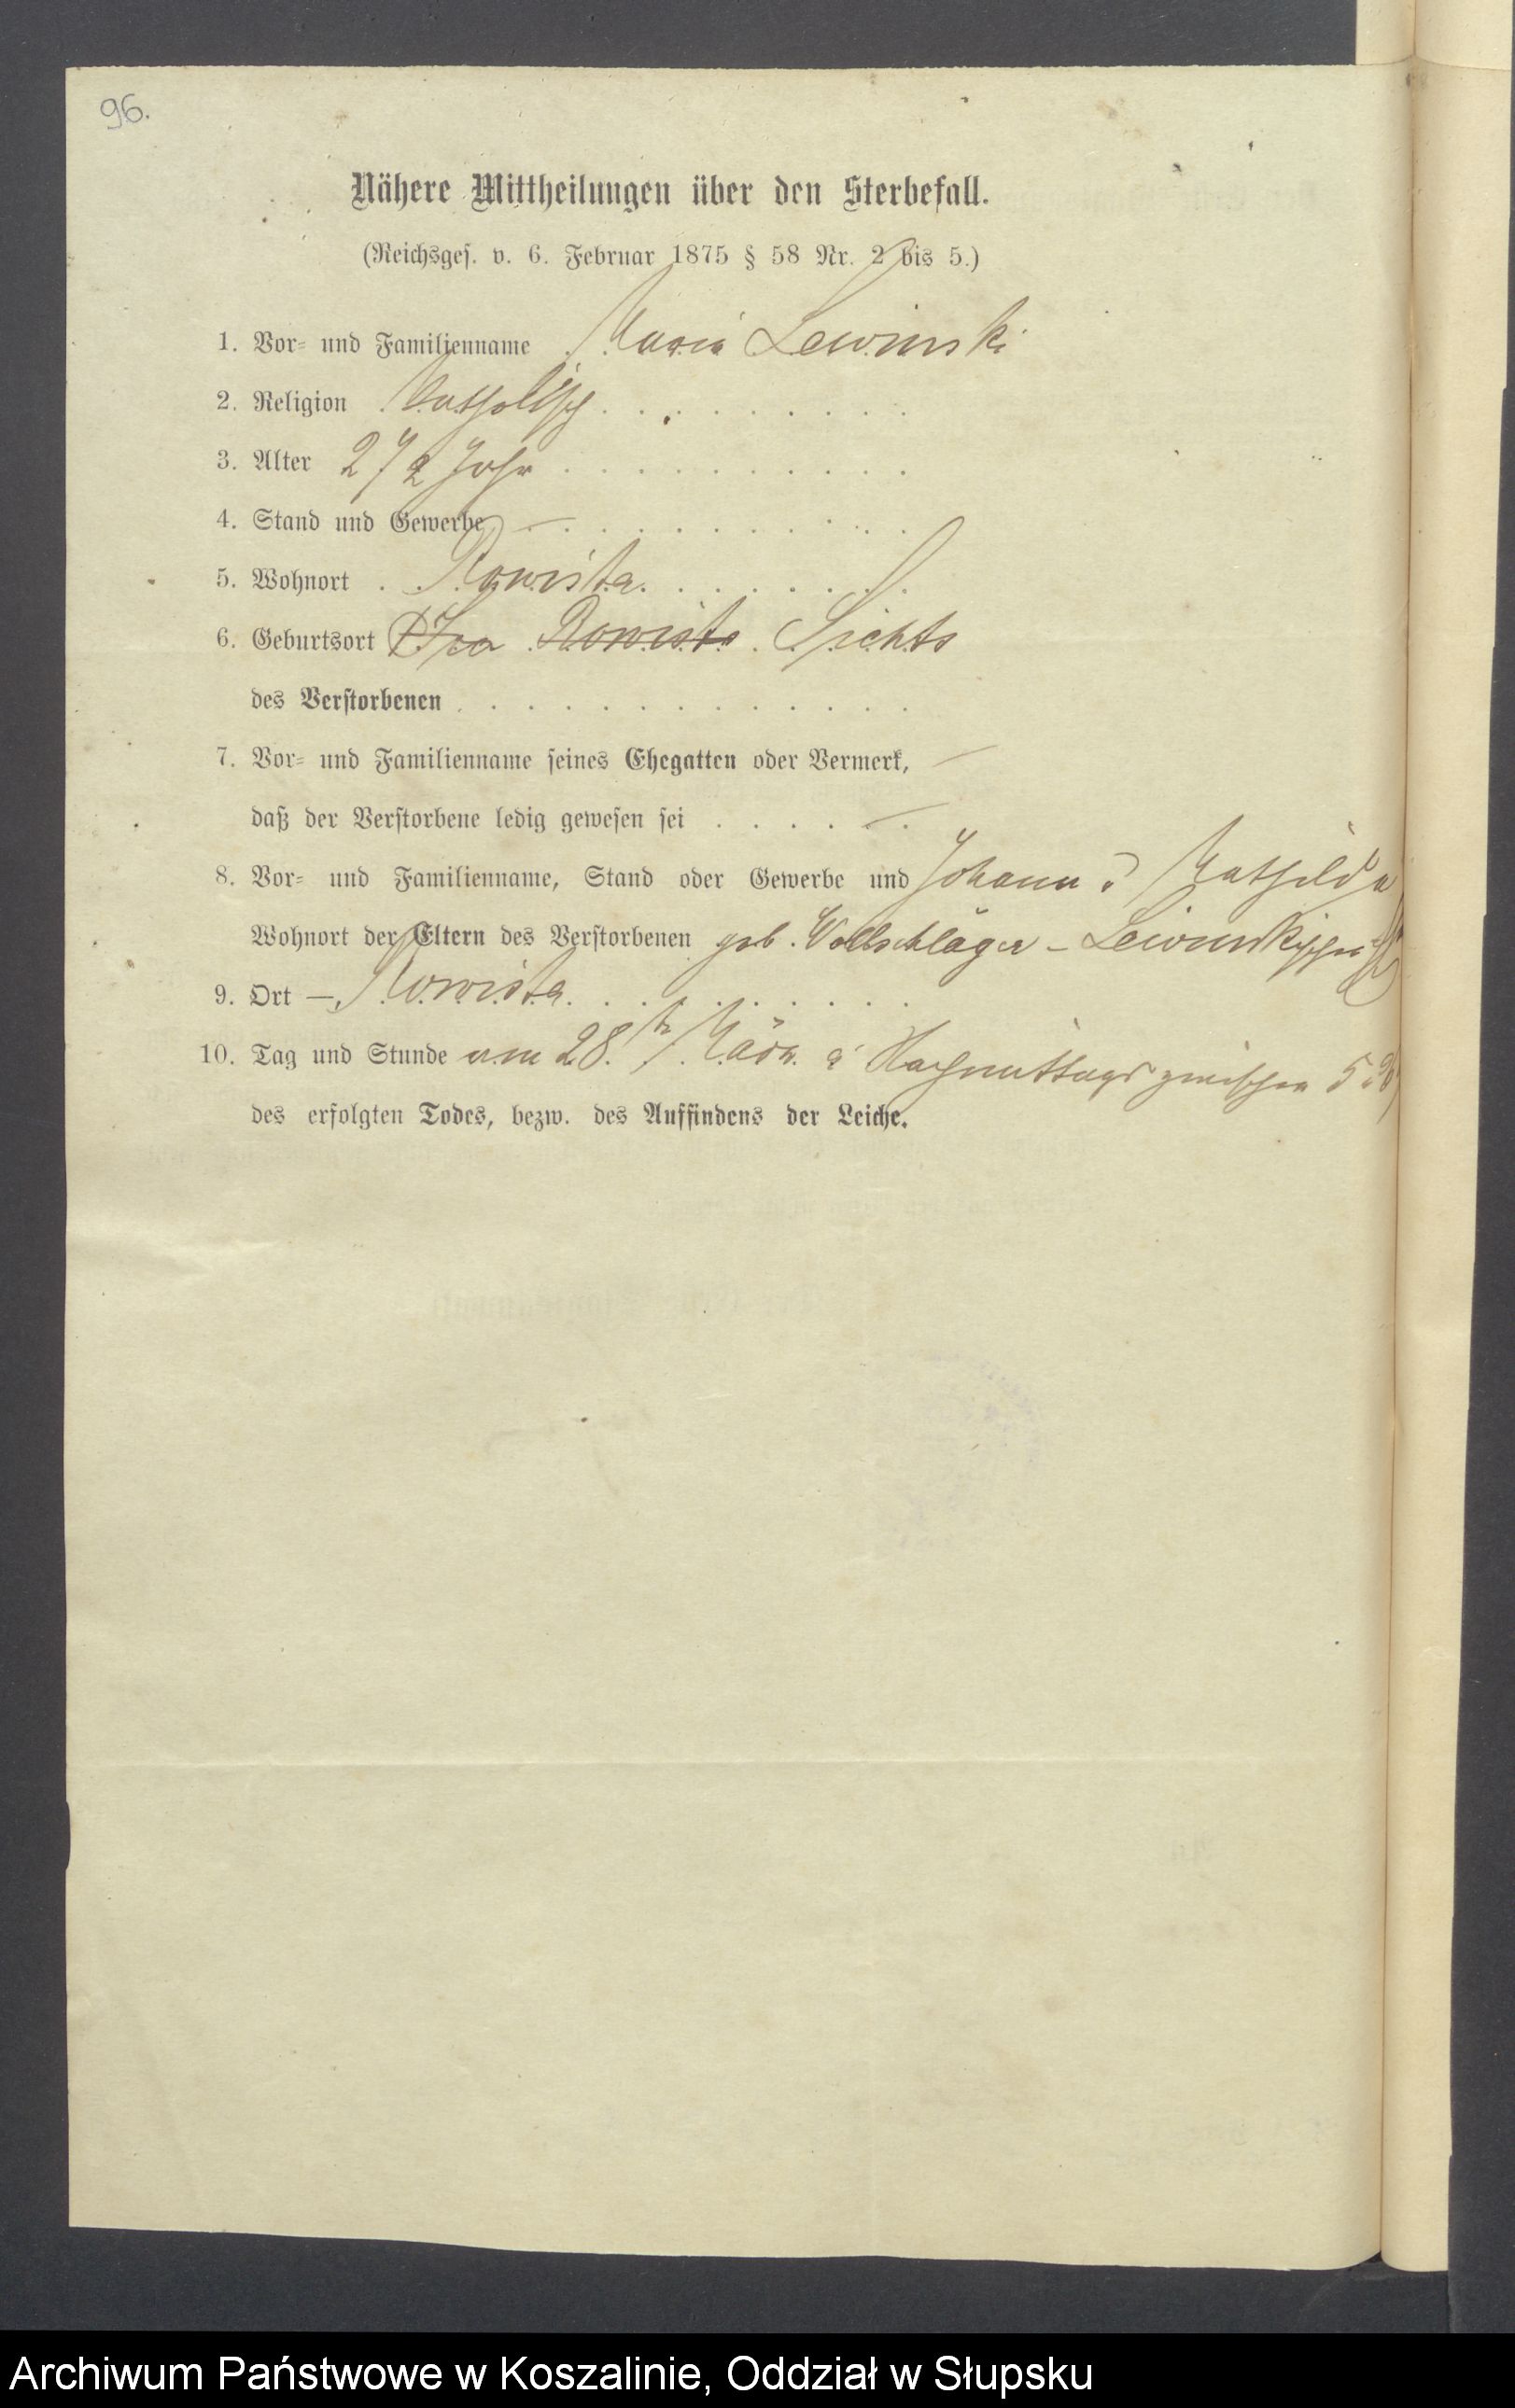 96.
Nähere Mittheilungen über den Sterbefall.
(Reichsges. v. 6. Februar 1875 § 58 Nr. 2 bis 5.)
1. Vor- und Familienname Maria Lewinski
2. Religion Katholisch
3. Alter 2 1/2 Jahr
4. Stand und Gewerbe —
5. Wohnort Rowista
6. Geburtsort Rowista Lichts
des Verstorbenen
7. Vor- und Familienname seines Ehegatten oder Vermerk, —
daß der Verstorbene ledig gewesen sei —
8. Vor- und Familienname, Stand oder Gewerbe und Johann & Mathilda
Wohnort der Eltern des Verstorbenen geb. Wollschläger – Lewinskischen
9. Ort – Rowista
10. Tag und Stunde am 28. März Nachmittags zwischen 5
des erfolgten Todes, bezw. des Auffindens der Leiche.
Archiwum Państwowe w Koszalinie, Oddział w Słupsku